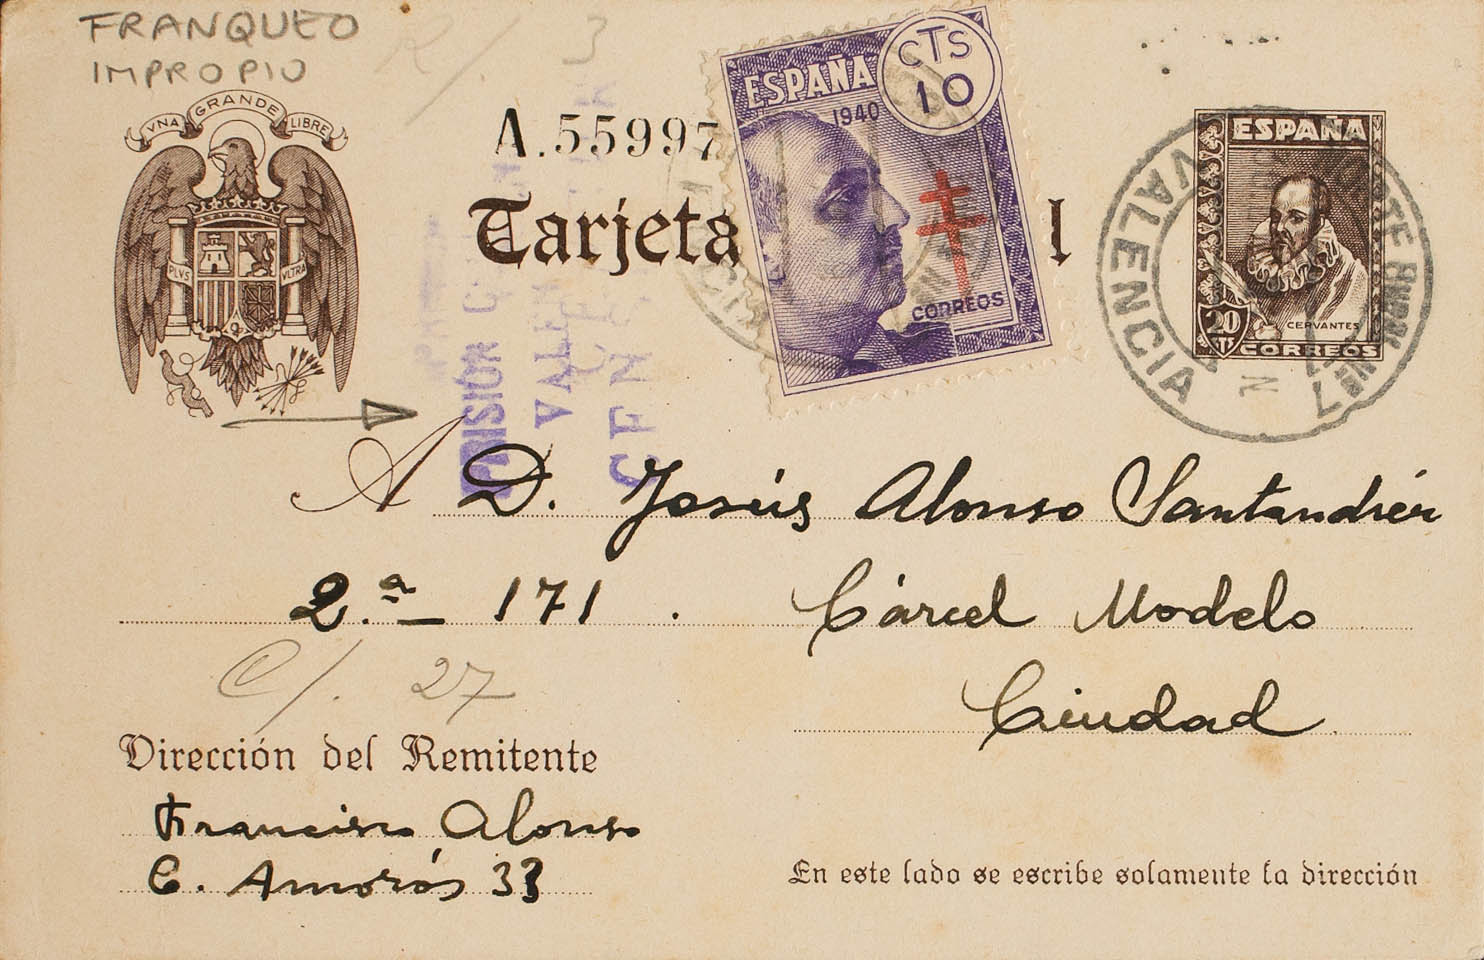 FRANQUEO
IMPROPIO
R/. 3
UNA GRANDE LIBRE
PLVS VLTRA
A.55997
Tarjeta l
ESPAÑA
1940
CTS
10
CORREOS
ESPAÑA
20
CTS
CERVANTES
CORREOS
VALENCIA
PRISIÓN
VALEN
CEN
A D. Jesús Alonso Santandréu
2.ª 171. Cárcel Modelo
C/. 27
Ciudad
Dirección del Remitente
Francisco Alonso
C. Amorós 33
En este lado se escribe solamente la dirección